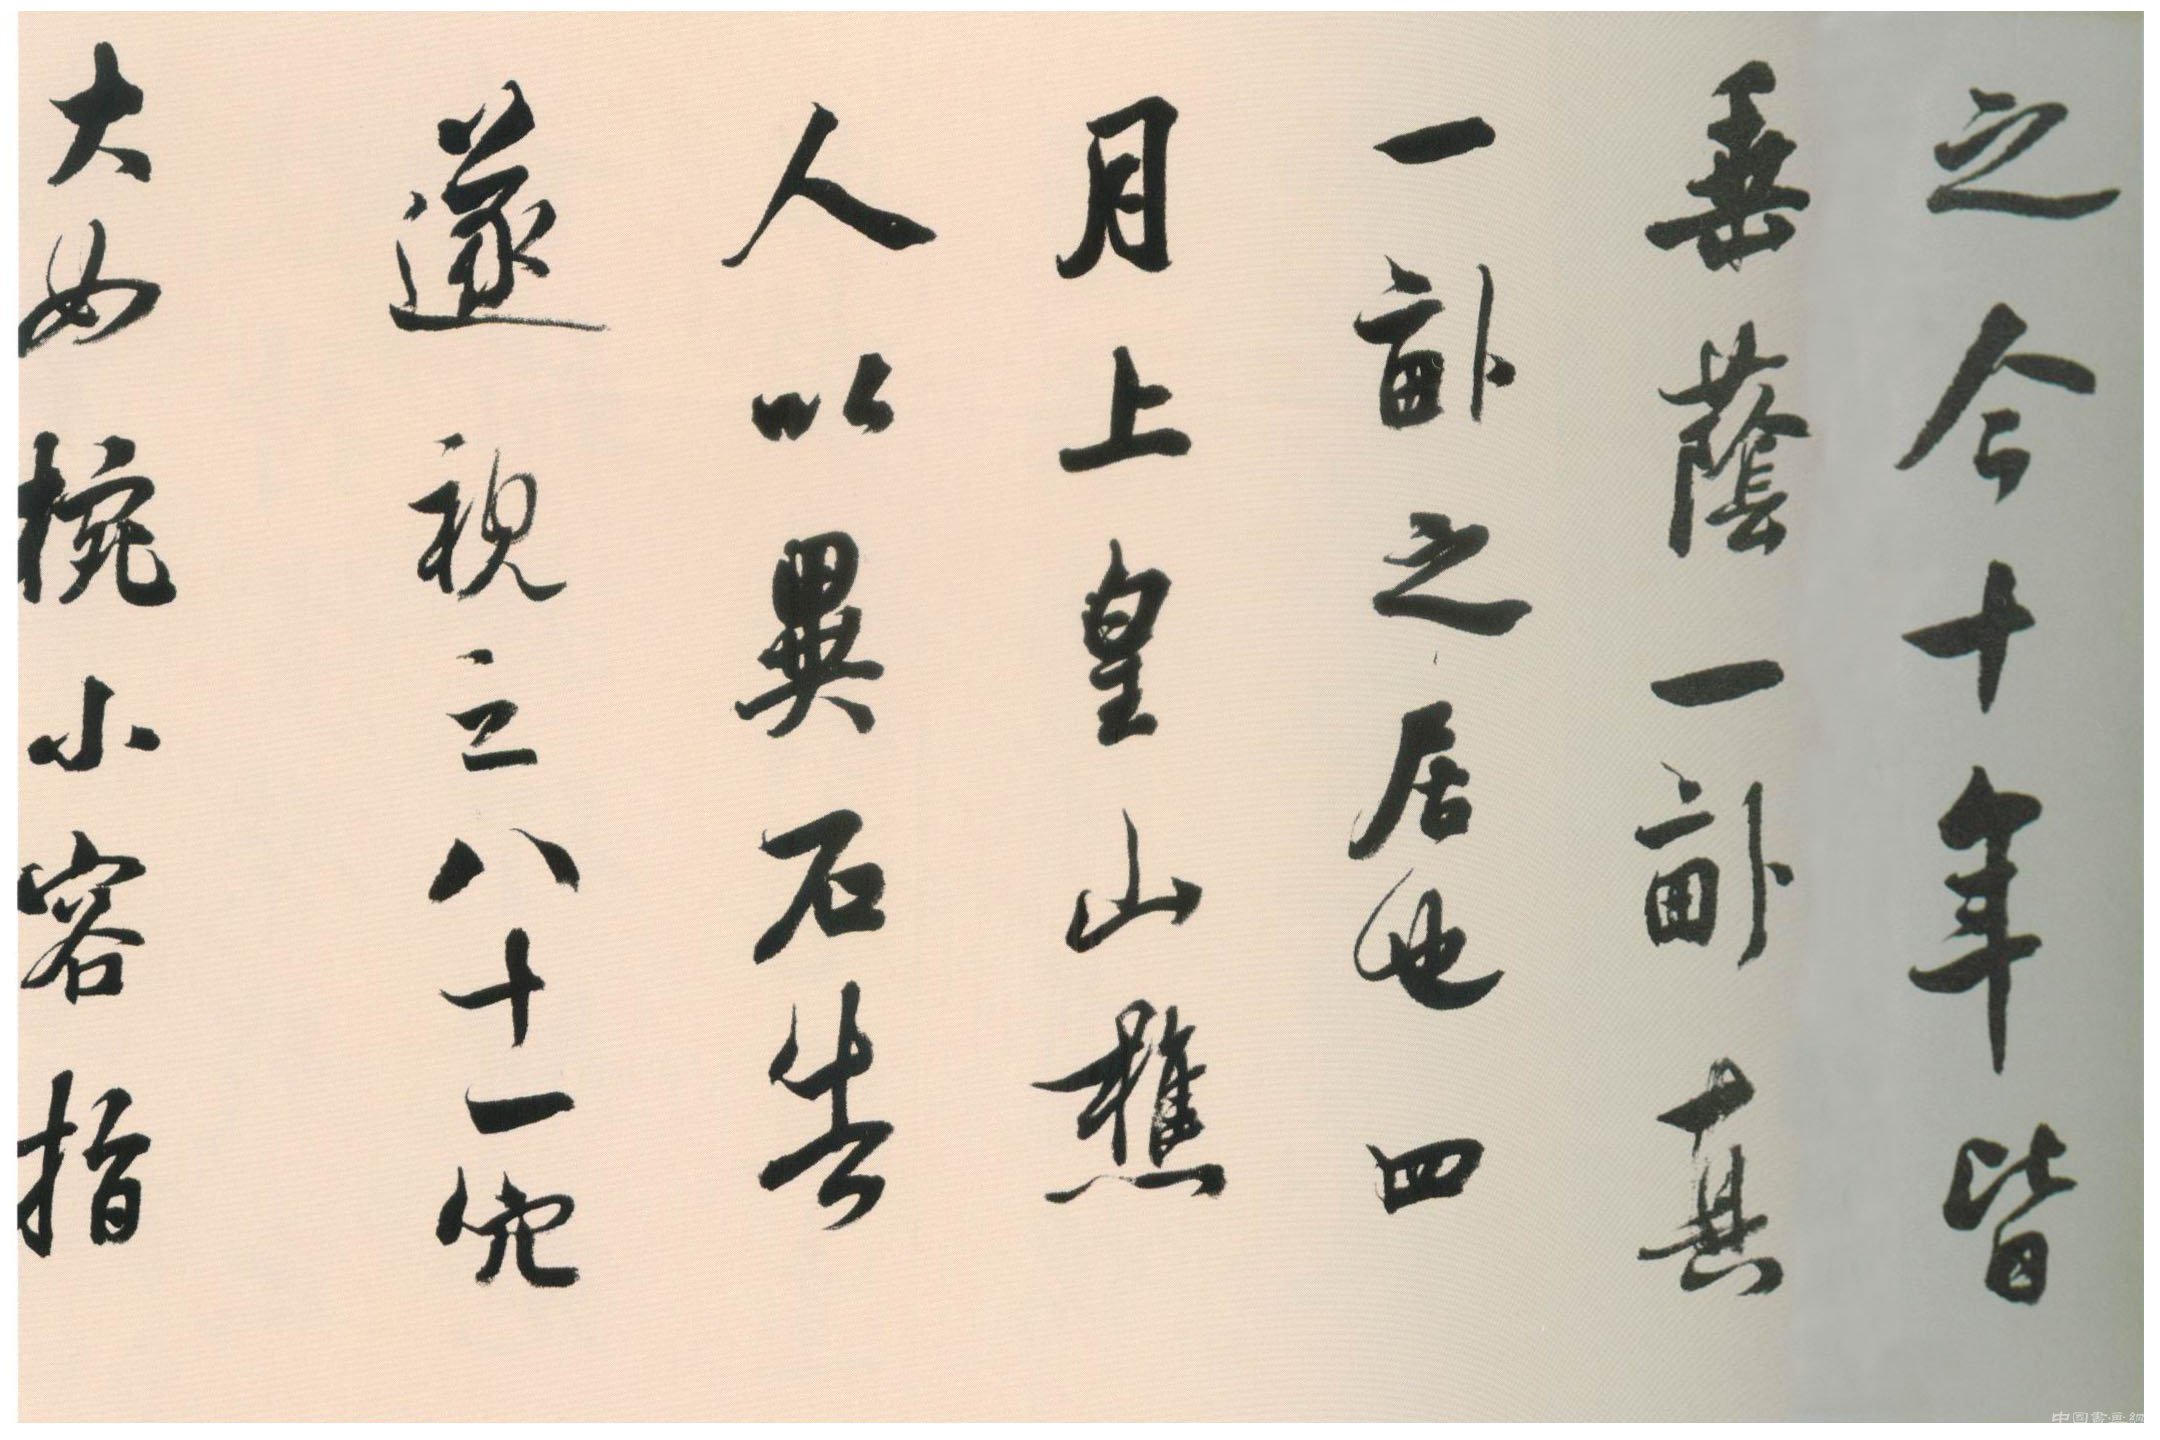 之今十年皆
垂蔭一畝真
一畝之居也四
月上皇山樵
人以異石告
遂視之八十一穴
大如椀小容指
中國書畫網